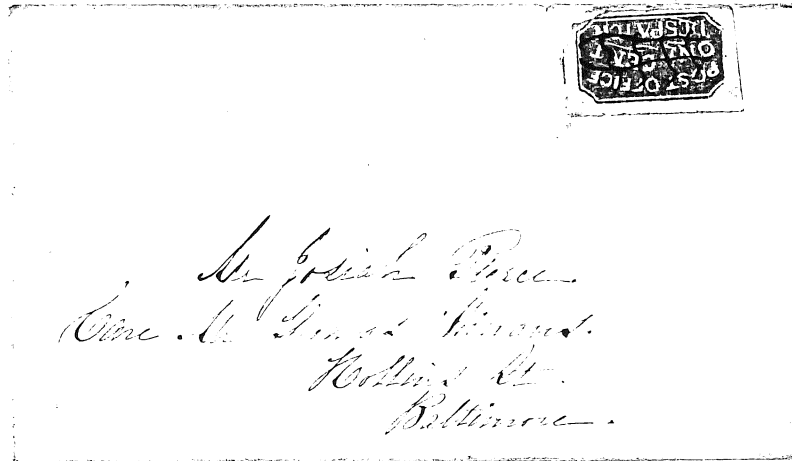 POST OFFICE
ONE CENT
DESPATCH
Mr Josiah Pierce
Care Mr
Hollins St
Baltimore.